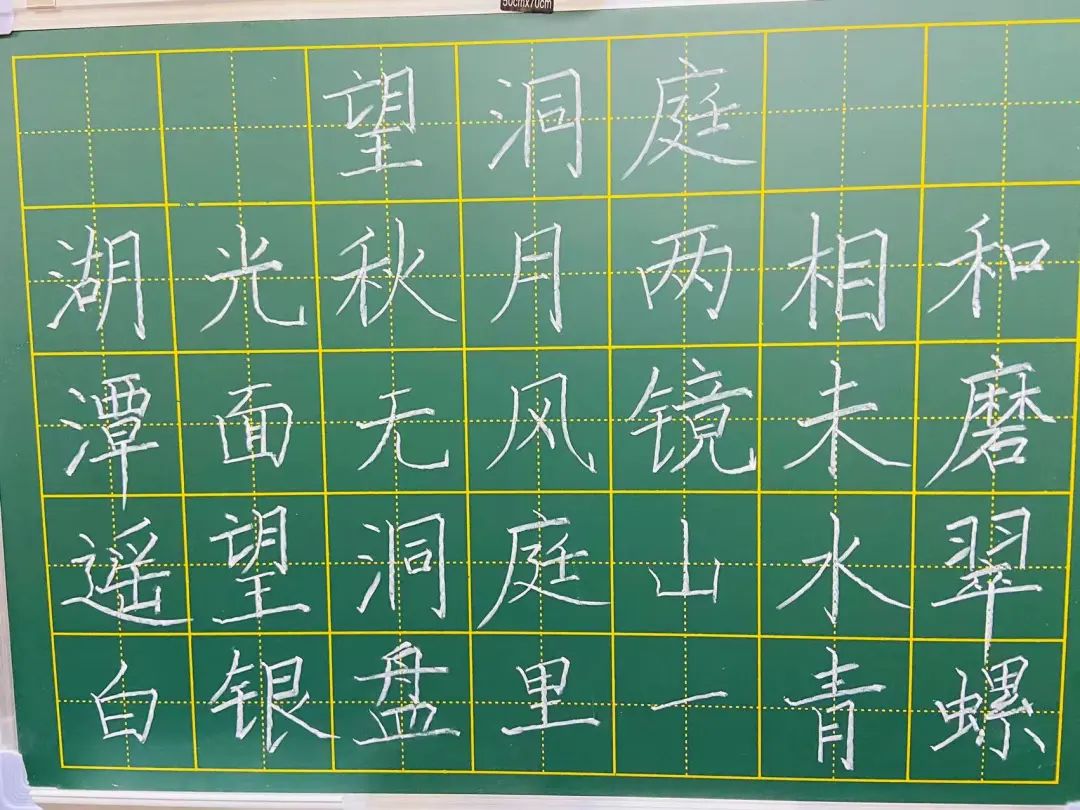 50cmx70cm
望洞庭
湖光秋月两相和
潭面无风镜未磨
遥望洞庭山水翠
白银盘里一青螺